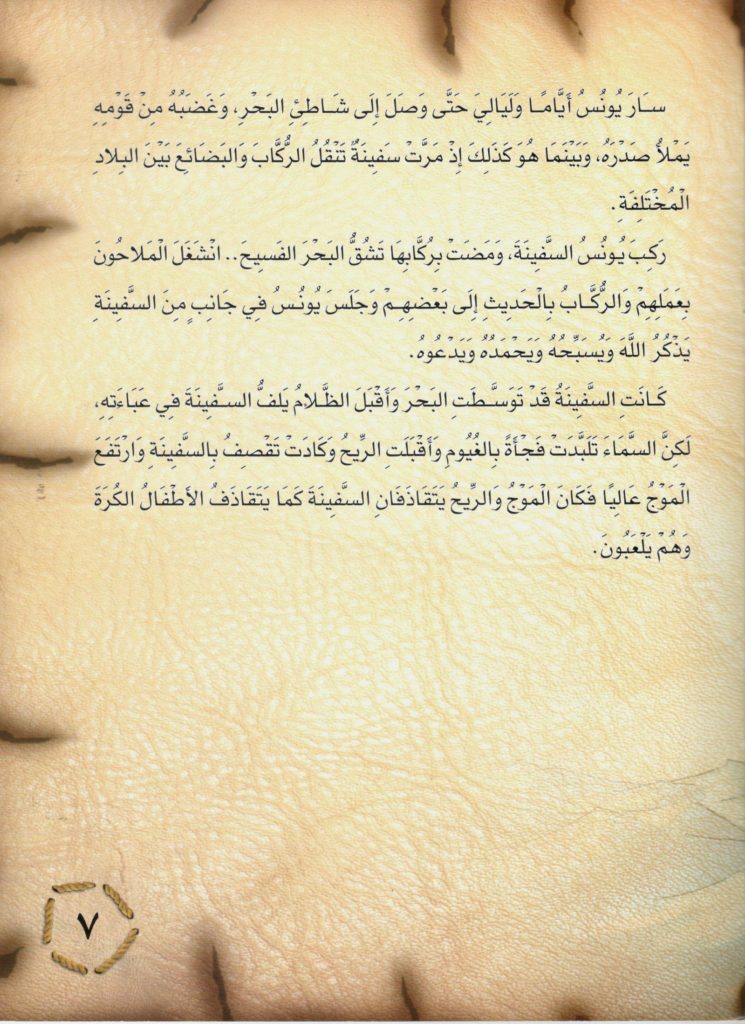 سَارَ يُونُسُ أَيَّامًا وَلَيَالِيَ حَتَّى وَصَلَ إِلَى شَاطِئِ البَحْرِ، وَغَضَبُهُ مِنْ قَوْمِهِ
يَمْلأُ صَدْرَهُ، وَبَيْنَمَا هُوَ كَذَلِكَ إِذْ مَرَّتْ سَفِينَةٌ تَنْقُلُ الرُّكَّابَ وَالبَضَائِعَ بَيْنَ البِلادِ
الْمُخْتَلِفَةِ.
رَكِبَ يُونُسُ السَّفِينَةَ، وَمَضَتْ بِرُكَّابِهَا تَشُقُّ البَحْرَ الفَسِيحَ.. انْشَغَلَ الْمَلاحُونَ
بِعَمَلِهِمْ وَالرُّكَّابُ بِالْحَدِيثِ إِلَى بَعْضِهِمْ وَجَلَسَ يُونُسُ فِي جَانِبٍ مِنَ السَّفِينَةِ
يَذْكُرُ اللَّهَ وَيُسَبِّحُهُ وَيَحْمَدُهُ وَيَدْعُوهُ.
كَانَتِ السَّفِينَةُ قَدْ تَوَسَّطَتِ البَحْرَ وَأَقْبَلَ الظَّلامُ يَلفُّ السَّفِينَةَ فِي عَبَاءَتِهِ،
لَكِنَّ السَّمَاءَ تَلَبَّدَتْ فَجْأَةً بِالغُيُومِ وَأَقْبَلَتِ الرِّيحُ وَكَادَتْ تَقْصِفُ بِالسَّفِينَةِ وَارْتَفَعَ
الْمَوْجُ عَالِيًا فَكَانَ الْمَوْجُ وَالرِّيحُ يَتَقَاذَفَانِ السَّفِينَةَ كَمَا يَتَقَاذَفُ الأَطْفَالُ الكُرَةَ
وَهُمْ يَلْعَبُونَ.
٧